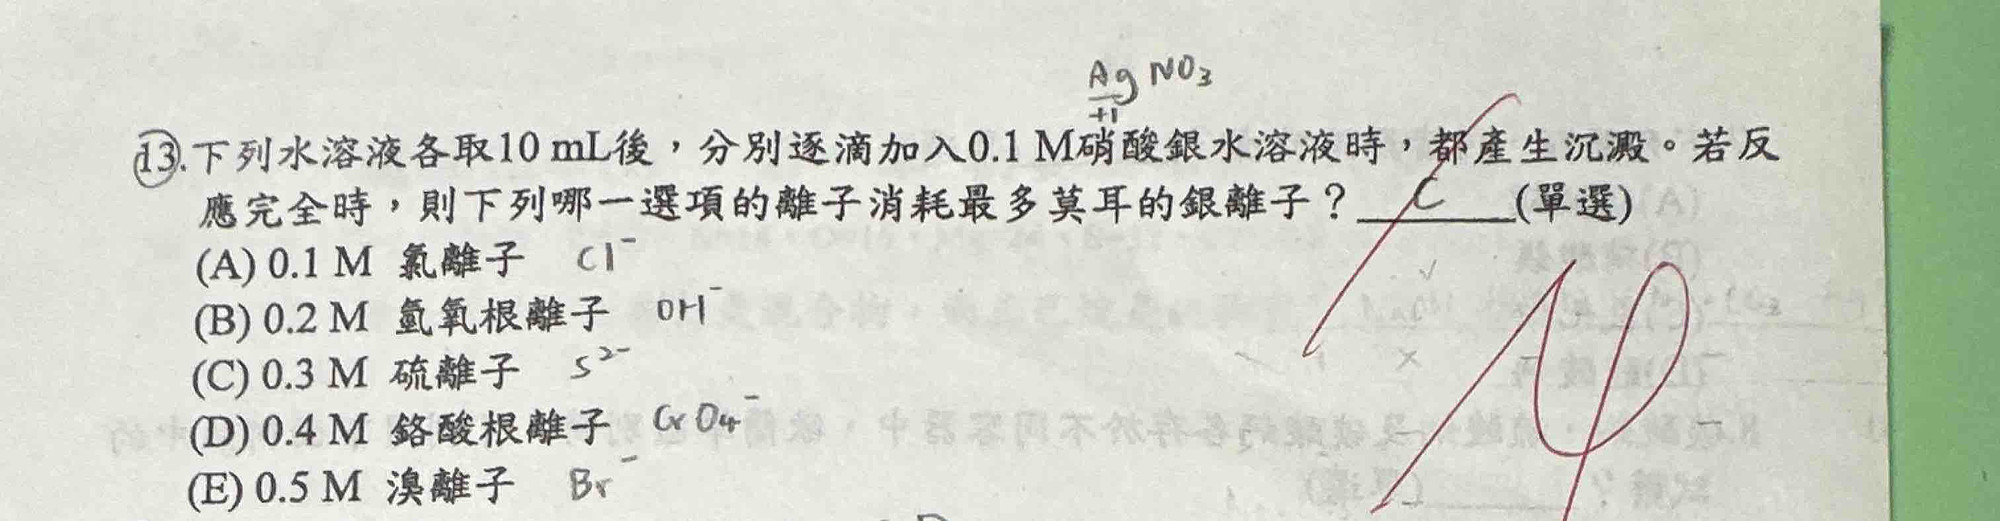 AgNO₃
+1
13.下列水溶液各取10 mL後，分別逐滴加入0.1 M硝酸銀水溶液時，都產生沉澱。若反
應完全時，則下列哪一選項的離子消耗最多莫耳的銀離子？ C (單選)
(A) 0.1 M 氯離子 Cl⁻
(B) 0.2 M 氫氧根離子 OH⁻
(C) 0.3 M 硫離子 S²⁻
(D) 0.4 M 鉻酸根離子 CrO₄⁻
(E) 0.5 M 溴離子 Br⁻